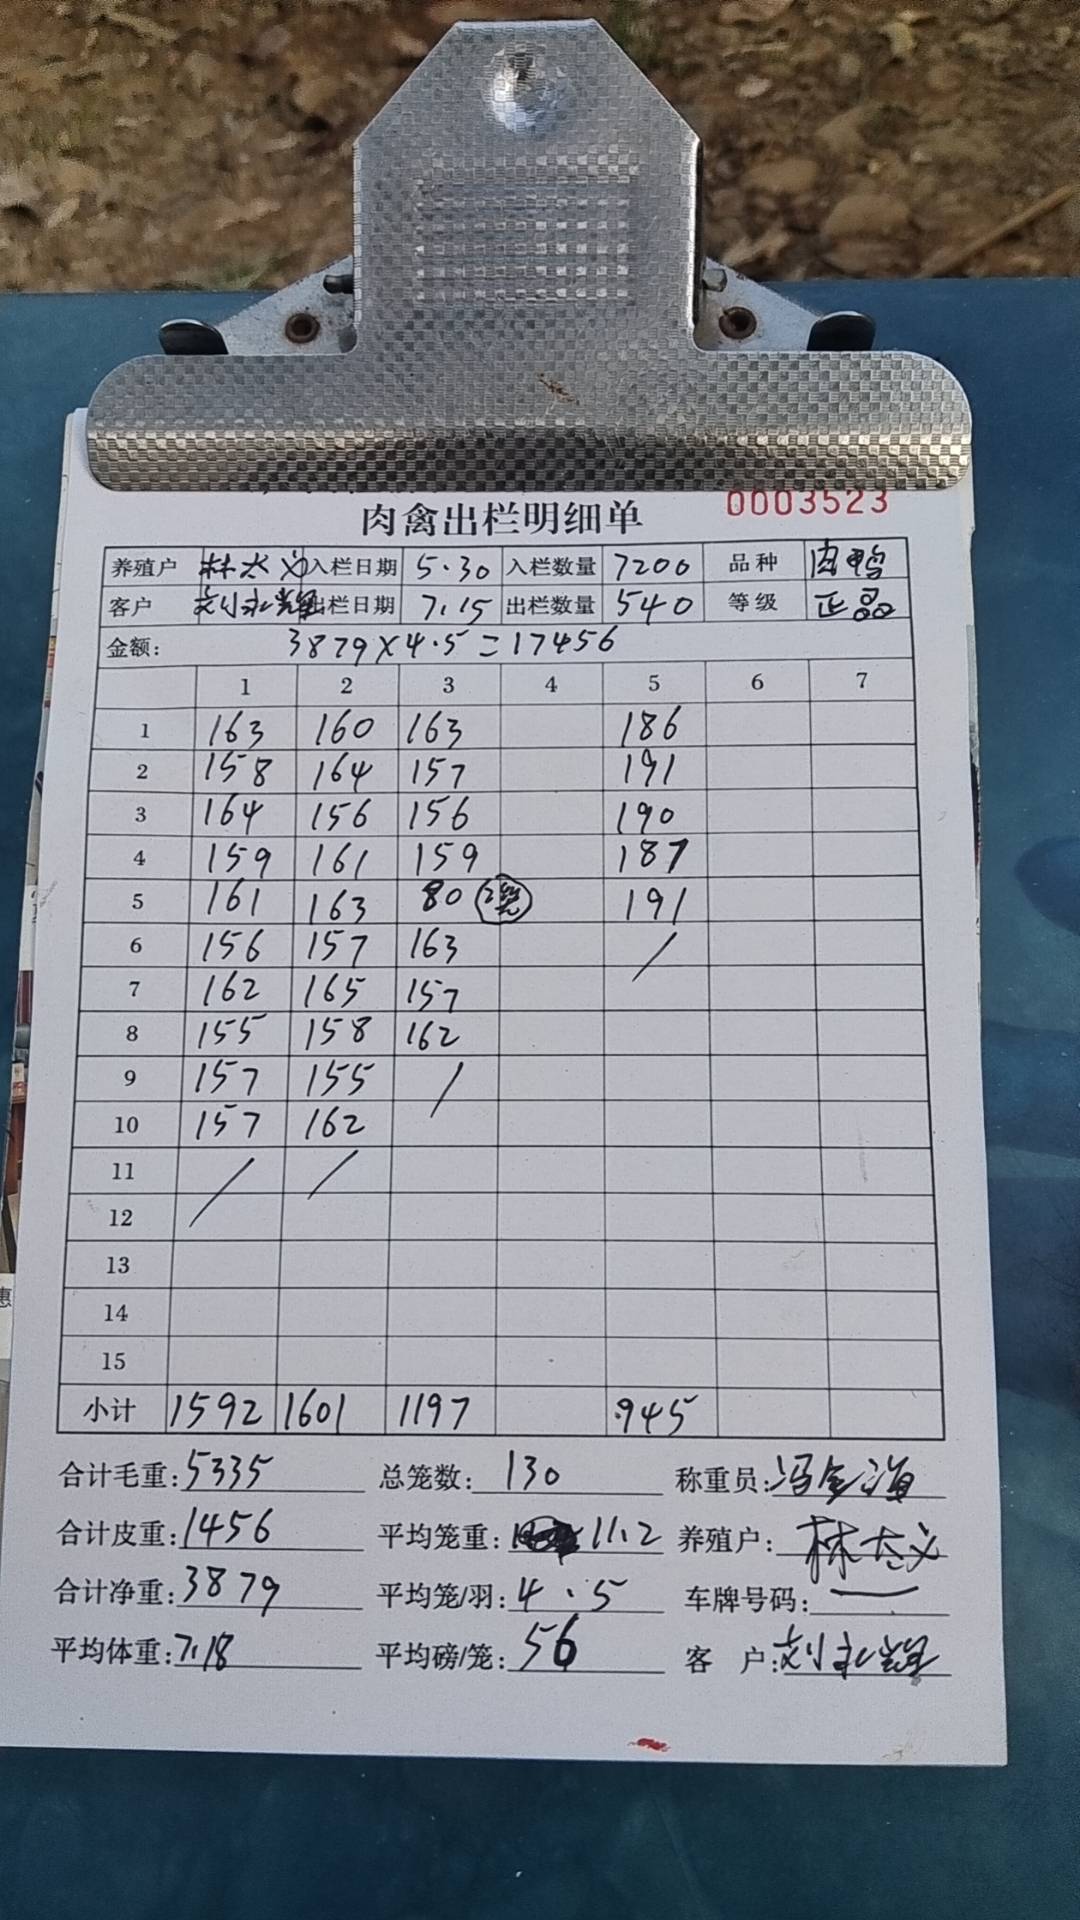 0003523
肉禽出栏明细单
养殖户 林太义 入栏日期 5.30 入栏数量 7200 品种 肉鸭
客户 刘永辉 出栏日期 7.15 出栏数量 540 等级 正品
金额: 3879×4.5=17456
1 2 3 4 5 6 7
1 163 160 163 186
2 158 164 157 191
3 164 156 156 190
4 159 161 159 187
5 161 163 80 191
6 156 157 163 /
7 162 165 157
8 155 158 162
9 157 155 /
10 157 162
11 / /
12
13
14
15
小计 1592 1601 1197 945
合计毛重:5335 总笼数:130 称重员:冯金海
合计皮重:1456 平均笼重:11.2 养殖户:林太义
合计净重:3879 平均笼/羽:4.5 车牌号码:—
平均体重:7.18 平均磅/笼:56 客 户:刘永辉